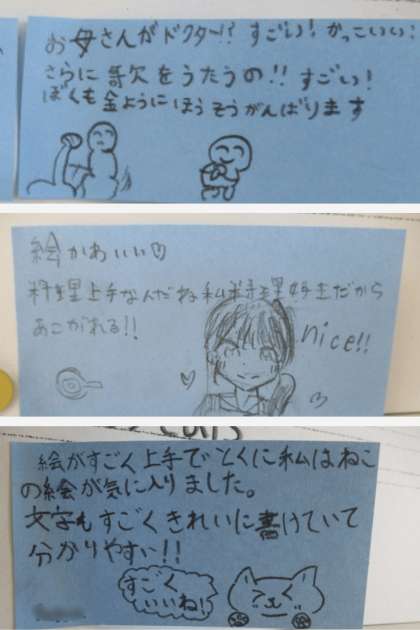 お母さんがドクター!? すごい! かっこいい!
さらに歌をうたうの!! すごい!
ぼくも金ように ほうそうがんばります
絵かわいい♡
料理上手なんだね 私料理好きだから
あこがれる!!
nice!!
絵がすごく上手で とくに私はねこ
の絵が気に入りました。
文字もすごくきれいに書けていて
分かりやすい!!
すごく
いいね!